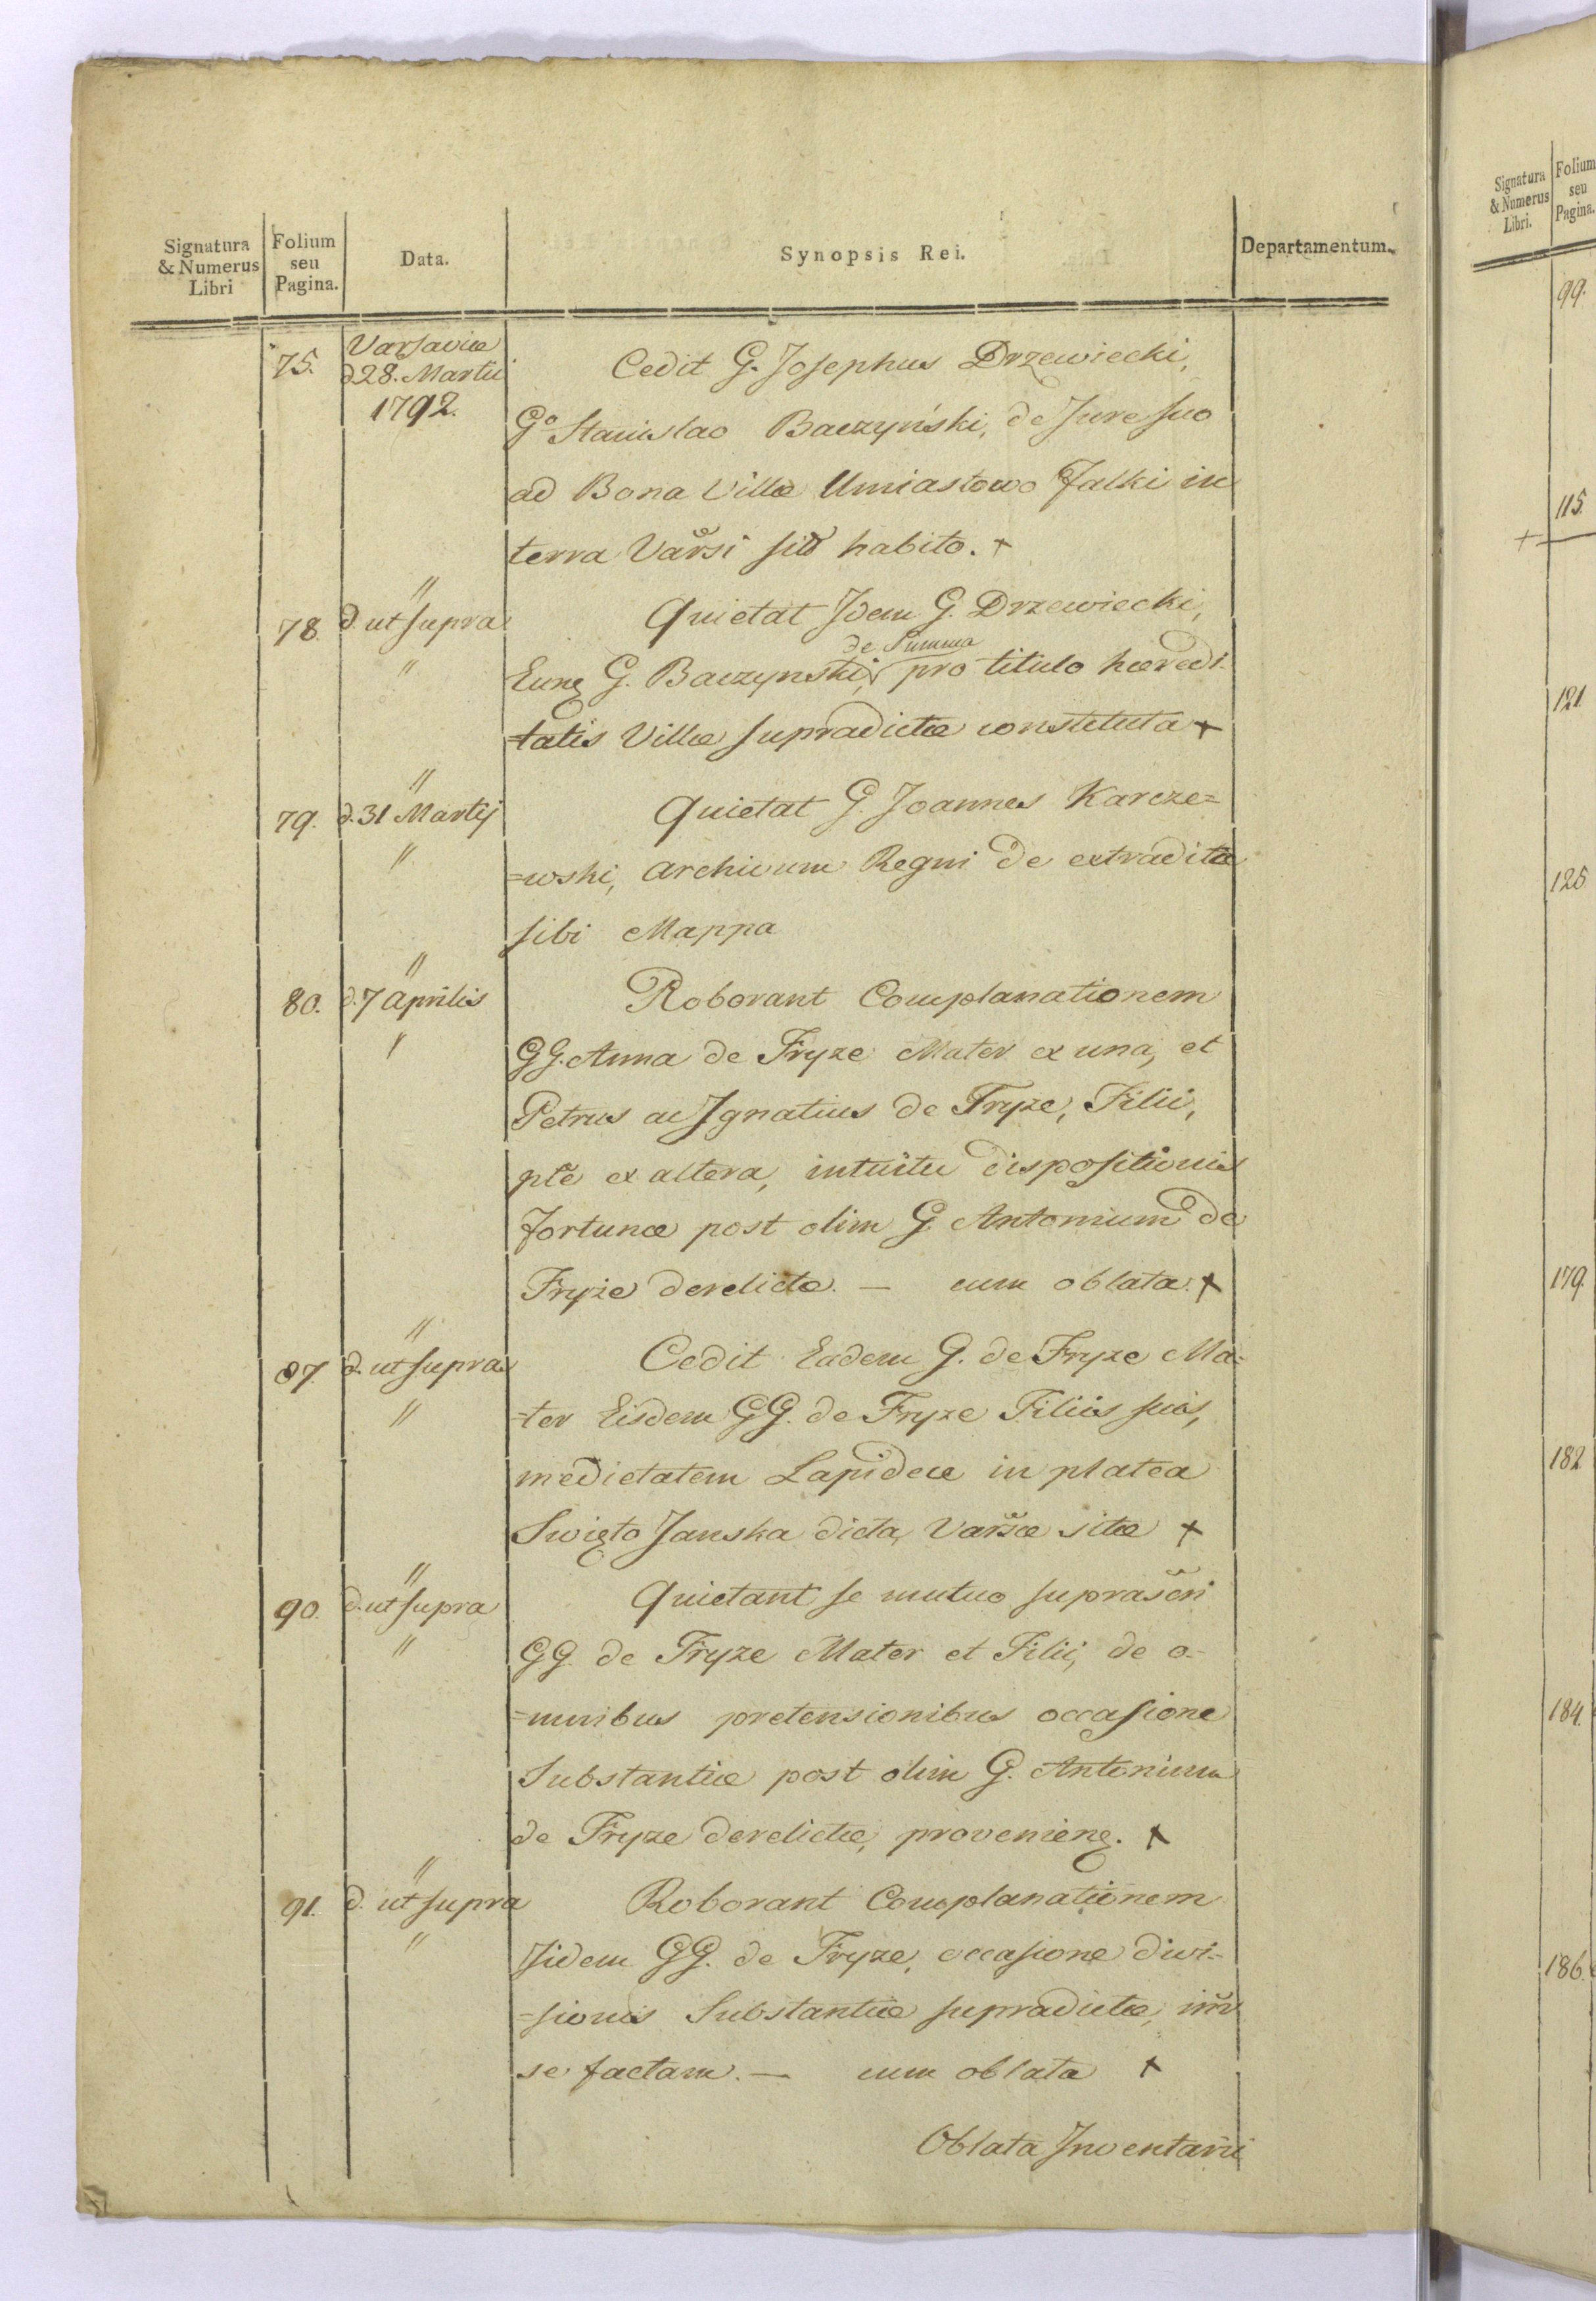 Signatura & Numerus Libri | Folium seu Pagina. | Data. | Synopsis Rei. | Departamentum.
75. | Varsaviæ d 28. Martii 1792. | Cedit G. Josephus Drzewiecki,
Go Stanislao Baczyński, de Jure suo
ad Bona Villæ Umiastowo Jalki in
terra Varsi sit habito. +
78. | " d. ut supra " | Quietat Idem G. Drzewiecki,
de Summa
Eunq G. Baczynski, pro titulo hæredi-
=tatis Villæ supradictæ constituta +
79. | " d. 31 Martij " | Quietat G. Joannes Karcze=
=wski, Archivum Regni de extradita
sibi Mappa
80. | " d. 7 Aprilis " | Roborant Complanationem
GG. Anna de Fryze Mater ex una, et
Petrus ac Ignatius de Fryze, Filii,
pte ex altera, intuitu dispositionis
fortunæ post olim G. Antonium de
Fryze derelictæ. — cum oblata. +
87. | " d. ut supra " | Cedit Eadem G. de Fryze Ma=
=ter Eisdem GG. de Fryze Filiis suis,
medietatem Lapideæ in platea
Swięto Janska dicta, Varsæ sitæ +
90. | " d. ut supra " | Quietant se mutuo suprascri
GG. de Fryze Mater et Filii, de o-
=mnibus pretensionibus occasione
Substantiæ post olim G. Antonium
de Fryze derelictæ, provenienq. +
91. | " d. ut supra " | Roborant Complanationem
Iidem GG. de Fryze, occasione divi-
=sionis Substantiæ supradictæ, inr
se factam. — cum oblata +
Oblata Inventarii
Signatura & Numerus Libri. | Folium seu Pagina.
99.
115.
121.
125
179.
182
184.
186.